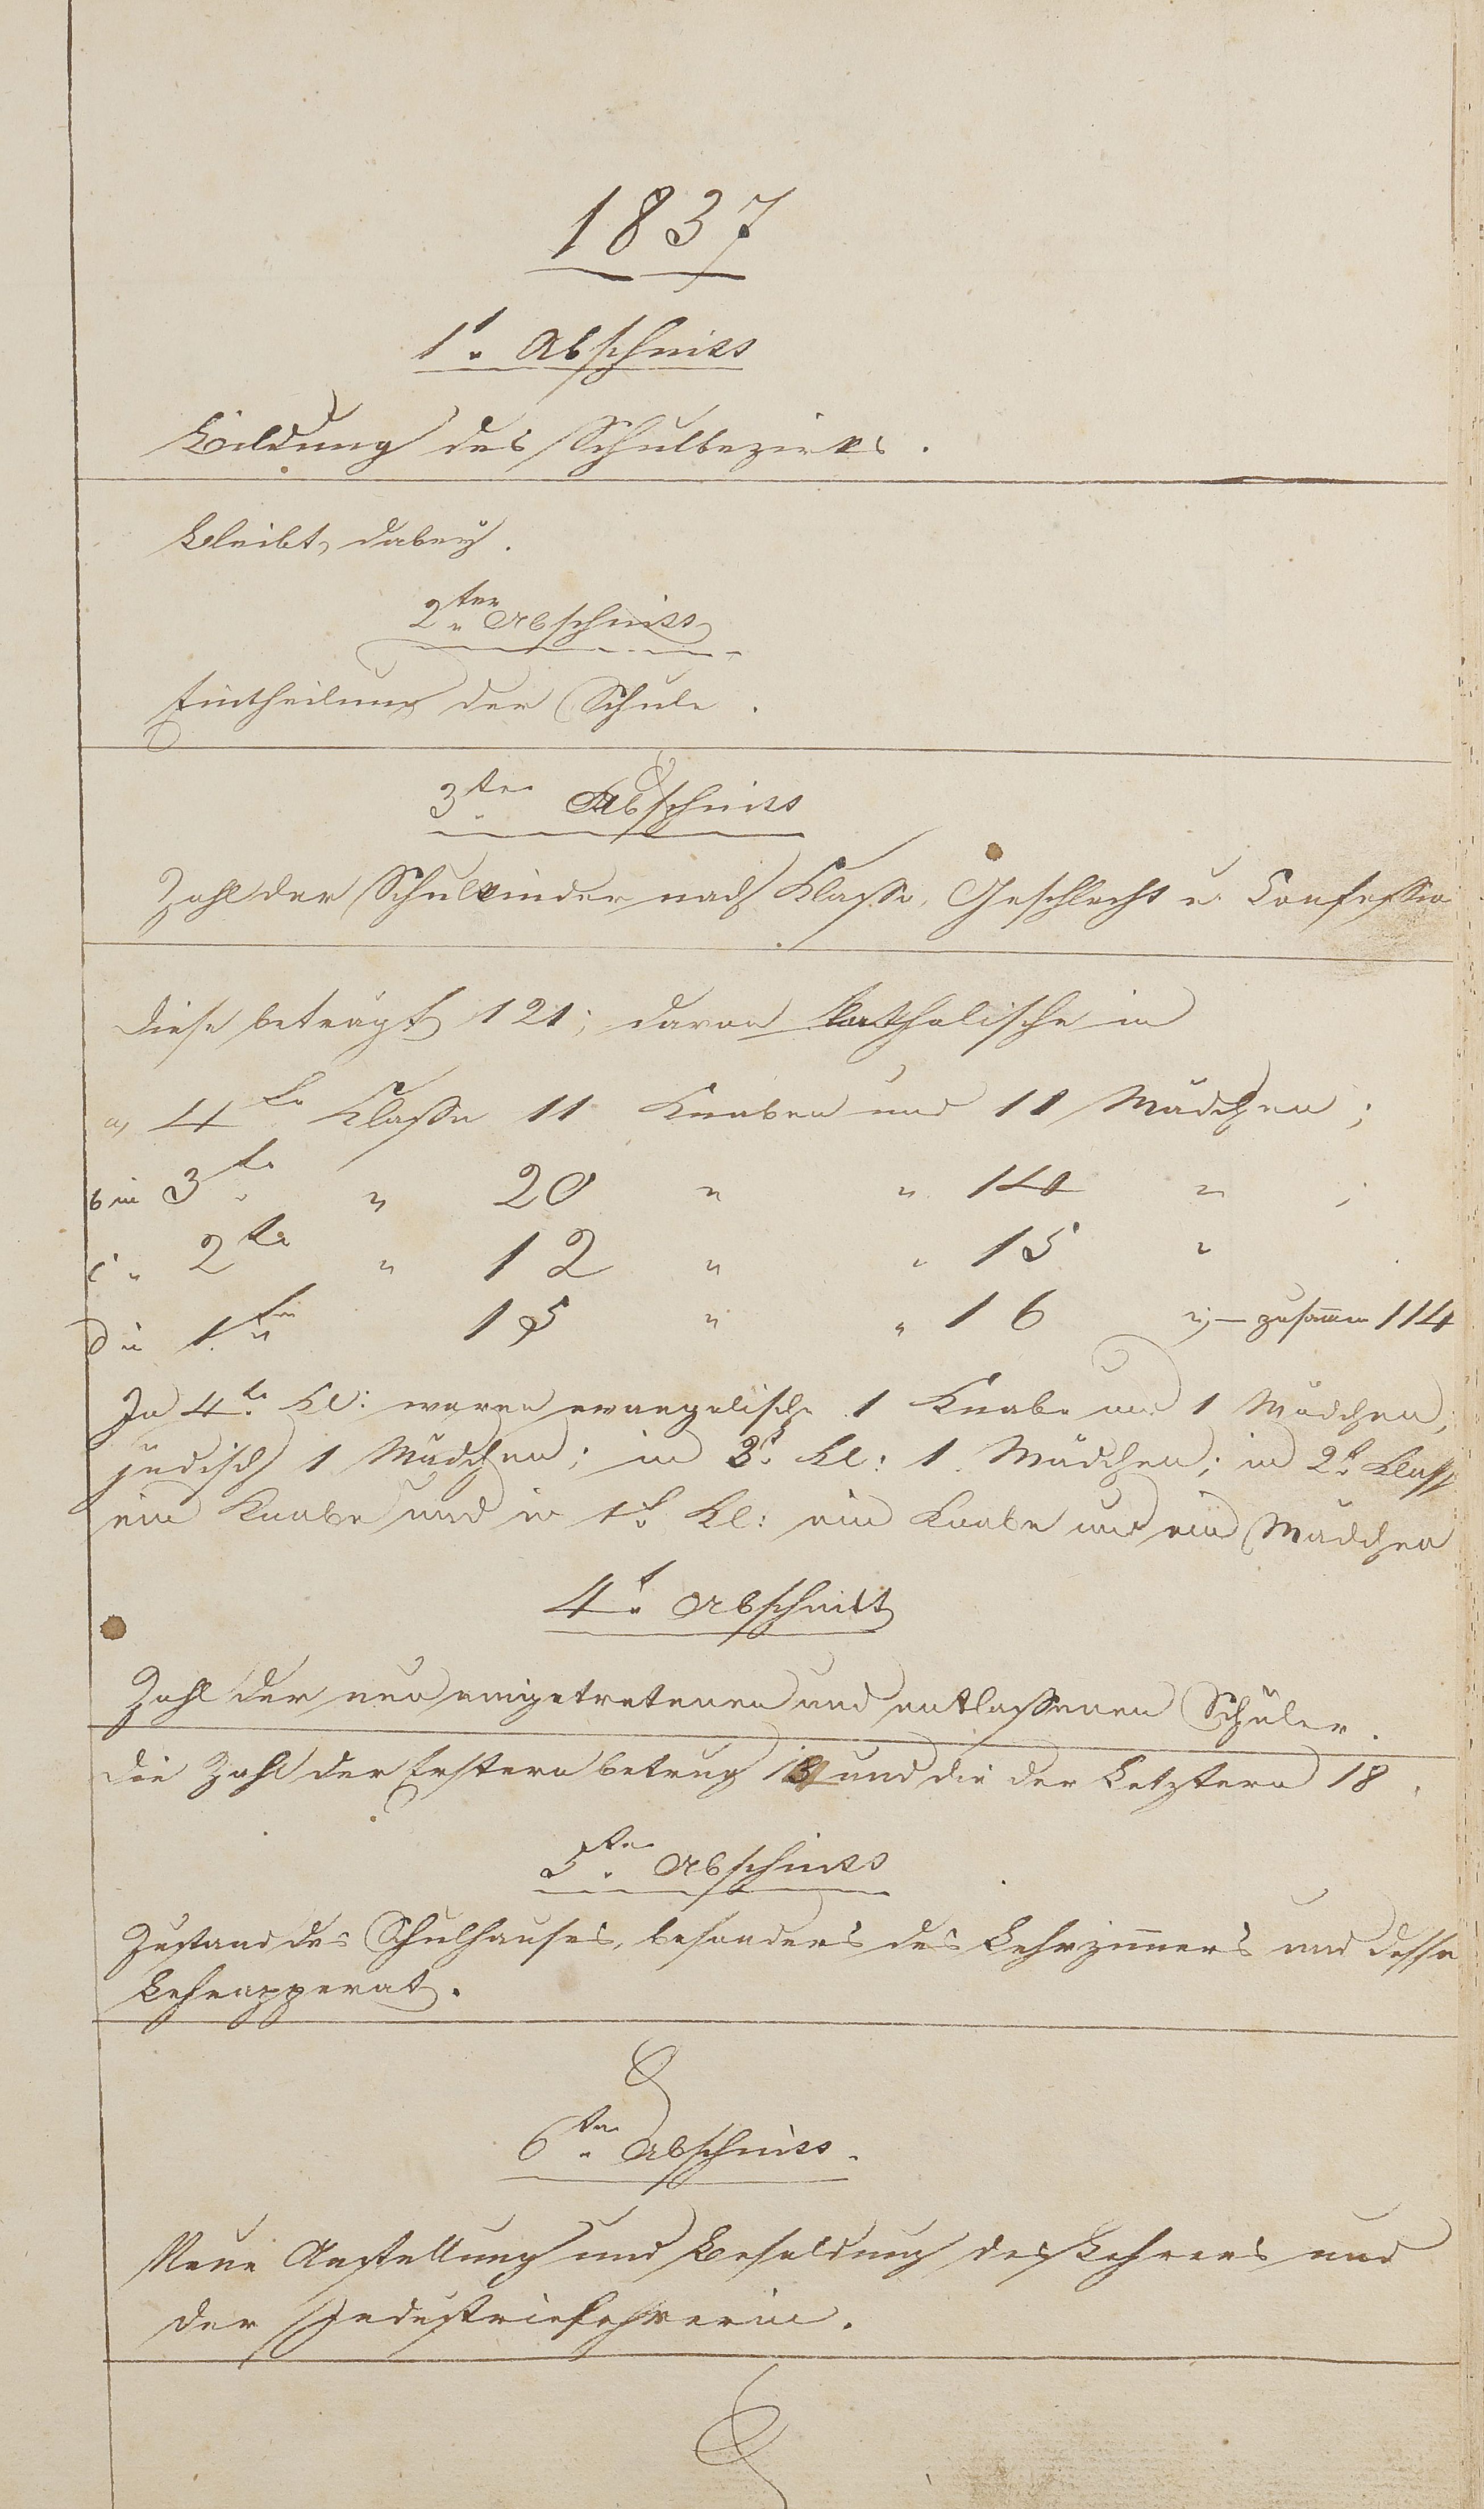 1837
1t. Abschnitt
Bildung des Schulbezirks.
Bleibt dabey.
2ter Abschnitt
Eintheilung der Schule.
3ter Abschnitt
Zahl der Schulkinder nach Klasse, Geschlecht u. Confessio
Diese beträgt 121; davon katholische in
a, 4te Klasse 11 Knaben und 11 Mädchen;
b in 3te " 20 " " 14 " ;
c " 2te " 12 " " 15 "
d in 1te " 15 " " 16 "; – zusammen 114
In 4te Kl: waren evangelische 1 Knabe und 1 Mädchen,
jüdisch 1 Mädchen; in 3t. Kl: 1 Mädchen; in 2t. Klass
ein Knabe und in 1t. Kl: ein Knabe und ein Mädchen
4t. Abschnitt
Zahl der neu eingetretenen und entlassenen Schüler.
Die Zahl der Erstern betrug und die der Letztern 18.
5ter Abschnitt
Zustand des Schulhauses, besonders des Lehrzimmers und dessen
Lehrapperat.
6ter Abschnitt.
Neue Anstellung und Besoldung des Lehrers und
der Industrielehrerin.